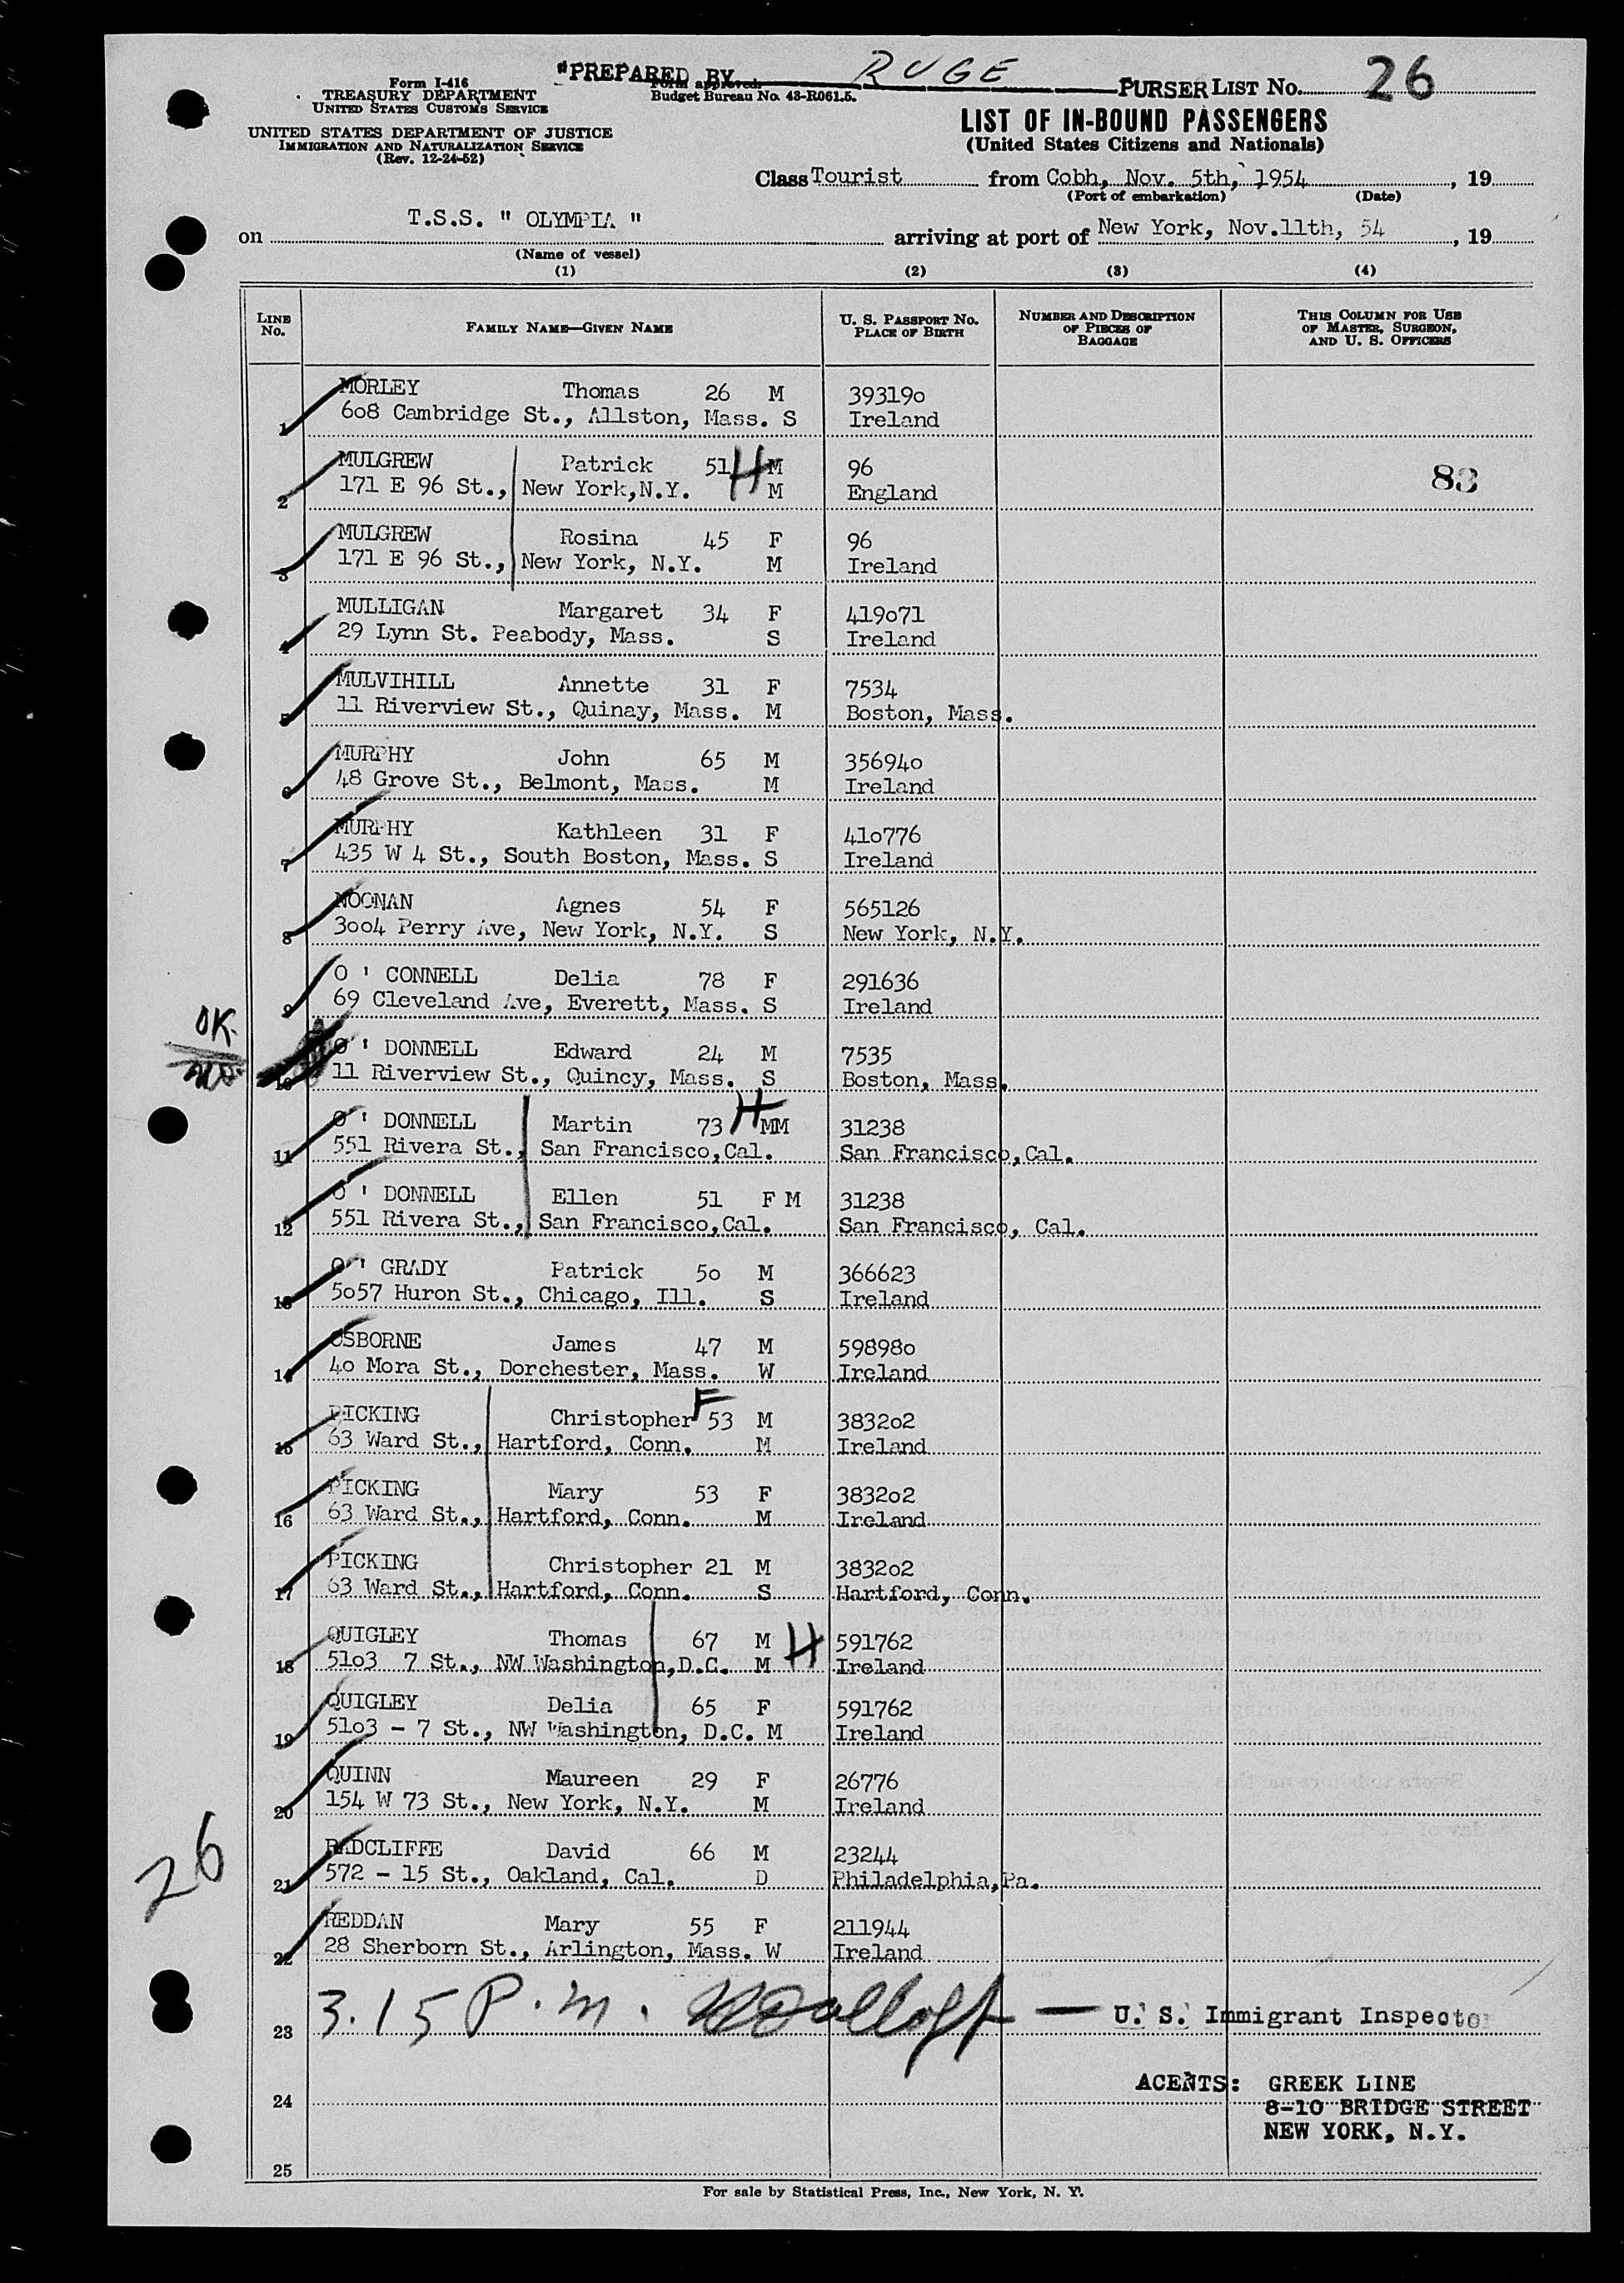 "PREPARED BY RUGE PURSER LIST No. 26
Form I-416
TREASURY DEPARTMENT
UNITED STATES CUSTOMS SERVICE
Form approved.
Budget Bureau No. 43-R061.5.
UNITED STATES DEPARTMENT OF JUSTICE
IMMIGRATION AND NATURALIZATION SERVICE
(Rev. 12-24-52)
LIST OF IN-BOUND PASSENGERS
(United States Citizens and Nationals)
Class Tourist from Cobh, Nov. 5th, 1954, 19
(Port of embarkation) (Date)
on T.S.S. " OLYMPIA " arriving at port of New York, Nov.11th, 54, 19
(Name of vessel)
(1) (2) (3) (4)
LINE No. FAMILY NAME—GIVEN NAME U. S. PASSPORT No. PLACE OF BIRTH NUMBER AND DESCRIPTION OF PIECES OF BAGGAGE THIS COLUMN FOR USE OF MASTER, SURGEON, AND U. S. OFFICERS
MORLEY Thomas 26 M 39319o
1 6o8 Cambridge St., Allston, Mass. S Ireland
MULGREW Patrick 51 H M 96 83
2 171 E 96 St., New York,N.Y. M England
MULGREW Rosina 45 F 96
3 171 E 96 St., New York, N.Y. M Ireland
MULLIGAN Margaret 34 F 419o71
4 29 Lynn St. Peabody, Mass. S Ireland
MULVIHILL Annette 31 F 7534
5 11 Riverview St., Quinay, Mass. M Boston, Mass.
MURPHY John 65 M 35694o
6 48 Grove St., Belmont, Mass. M Ireland
MURPHY Kathleen 31 F 41o776
7 435 W 4 St., South Boston, Mass. S Ireland
NOONAN Agnes 54 F 565126
8 3oo4 Perry Ave, New York, N.Y. S New York, N.Y.
O ' CONNELL Delia 78 F 291636
9 69 Cleveland Ave, Everett, Mass. S Ireland
OK.
O ' DONNELL Edward 24 M 7535
10 11 Riverview St., Quincy, Mass. S Boston, Mass.
O ' DONNELL Martin 73 H MM 31238
11 551 Rivera St., San Francisco,Cal. San Francisco,Cal.
O ' DONNELL Ellen 51 F M 31238
12 551 Rivera St., San Francisco,Cal. San Francisco, Cal.
O ' GRADY Patrick 5o M 366623
13 5o57 Huron St., Chicago, Ill. S Ireland
OSBORNE James 47 M 59898o
14 4o Mora St., Dorchester, Mass. W Ireland
PICKING Christopher F 53 M 3832o2
15 63 Ward St., Hartford, Conn. M Ireland
PICKING Mary 53 F 3832o2
16 63 Ward St., Hartford, Conn. M Ireland
PICKING Christopher 21 M 3832o2
17 63 Ward St., Hartford, Conn. S Hartford, Conn.
QUIGLEY Thomas 67 M H 591762
18 51o3 7 St., NW Washington,D.C. M Ireland
QUIGLEY Delia 65 F 591762
19 51o3 - 7 St., NW Washington, D.C. M Ireland
QUINN Maureen 29 F 26776
20 154 W 73 St., New York, N.Y. M Ireland
RADCLIFFE David 66 M 23244
21 572 - 15 St., Oakland, Cal. D Philadelphia,Pa.
26
REDDAN Mary 55 F 211944
22 28 Sherborn St., Arlington, Mass. W Ireland
23 3.15 P.m. — U. S. Immigrant Inspector
ACENTS: GREEK LINE
24 8-10 BRIDGE STREET
NEW YORK, N.Y.
25
For sale by Statistical Press, Inc., New York, N. Y.